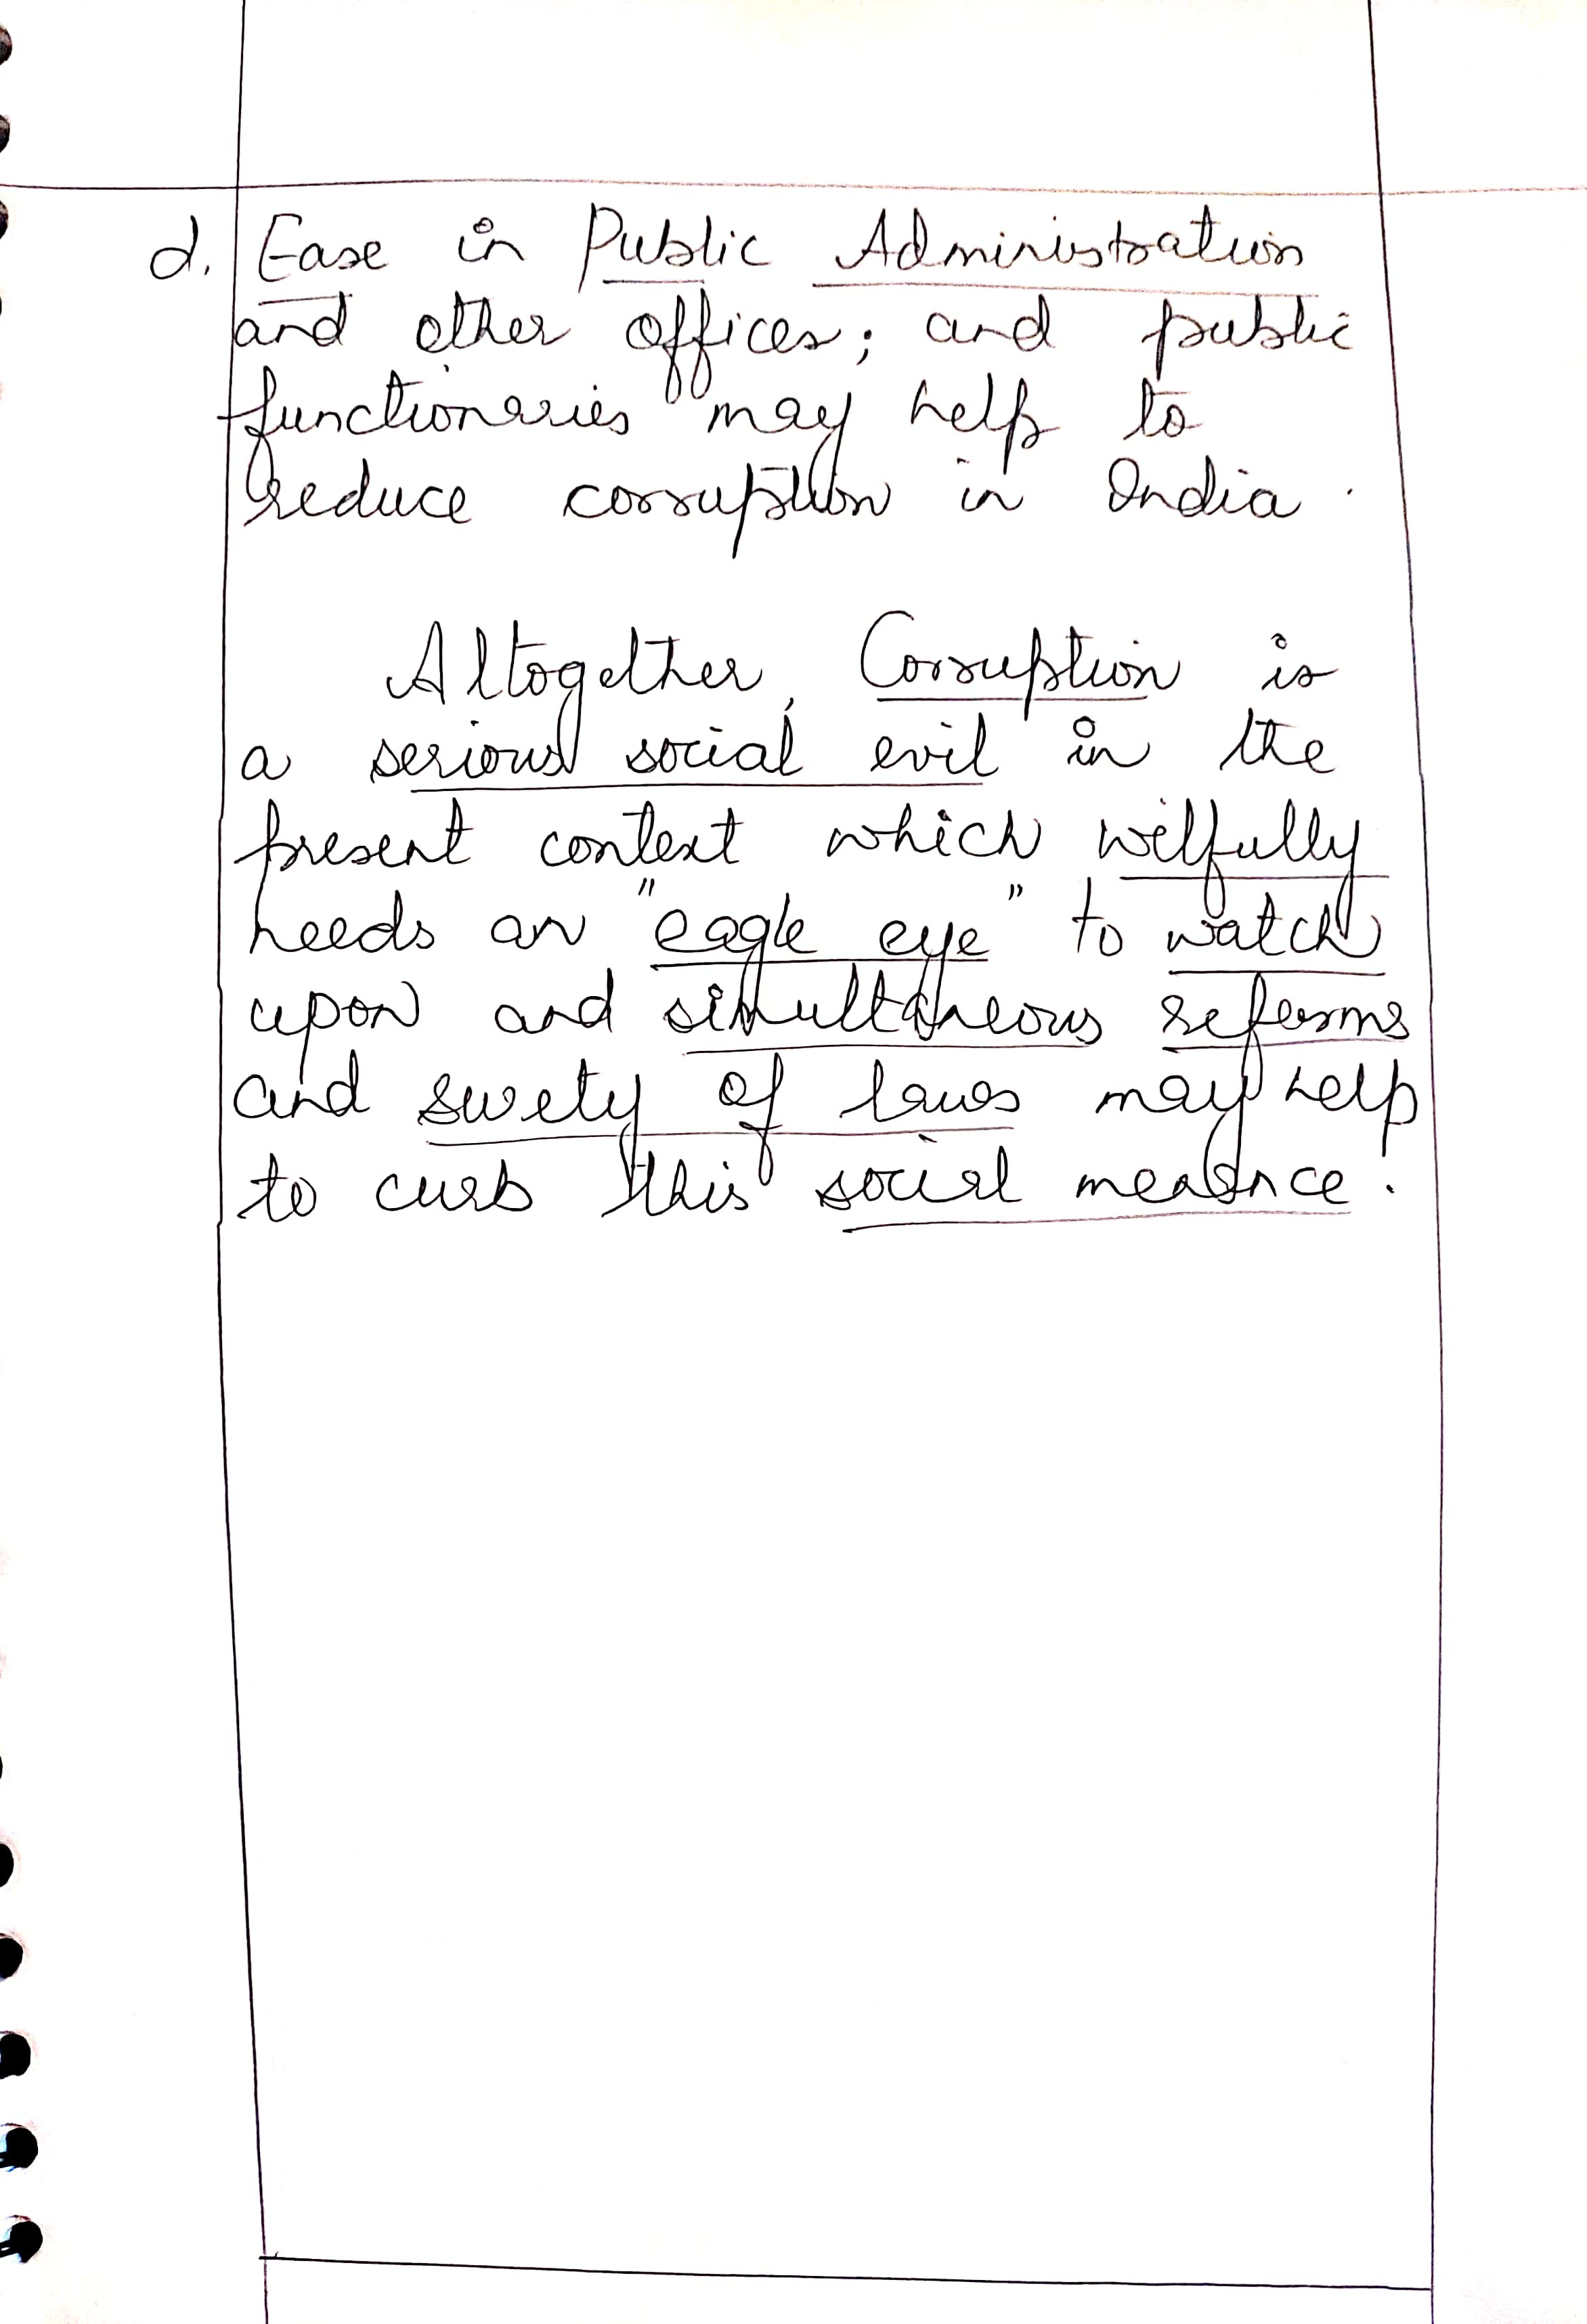 d. Ease in Public Administration
and other offices; and public
functionaries may help to
reduce corruption in India.
Altogether, Corruption is
a serious social evil in the
present context which wilfully
needs an "eagle eye" to watch
upon and simultaneous reforms
and surety of laws may help
to curb this social menance.